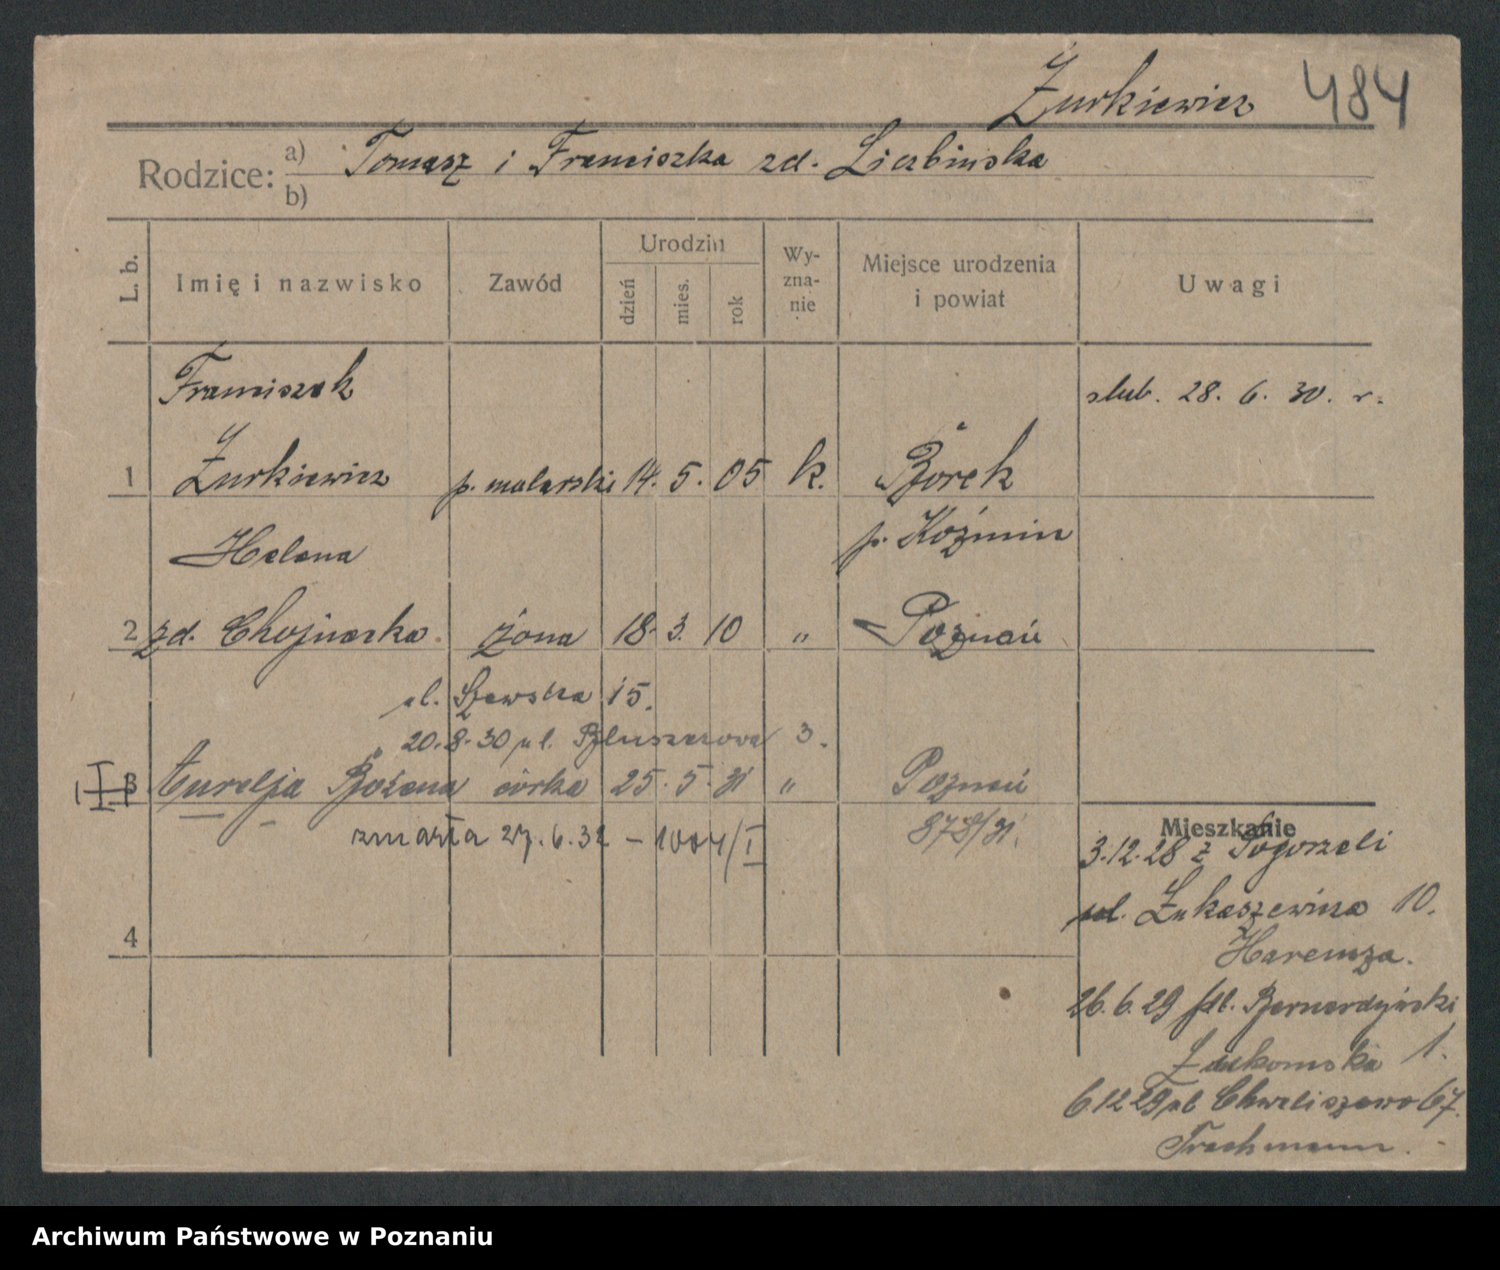 Żurkiewicz 484
Rodzice: a) Tomasz i Franciszka zd. Liczbińska
b)
L. b.
Imię i nazwisko
Zawód
Urodzin
dzień mies. rok
Wy-
zna-
nie
Miejsce urodzenia
i powiat
Uwagi
Franciszek
ślub. 28. 6. 30. r.
1 Żurkiewicz p. malarski 14. 5. 05 k. Borek
p. Koźmin
Helena
2 zd. Chojnacka żona 18. 3. 10 " Poznań
ul. Szewska 15.
20.8.30 ul. 3.
3 Aurelja Bożena córka 25. 5. 31 " Poznań
878/31.
zmarła 27.6.32 – 1004/I
4
Mieszkanie
3.12.28 z Pogorzeli
ul. Łukaszewicza 10.
26.6.29 pl. Bernardyński
Łukomska 1.
6 12 29 ul Chwaliszewo 67.
Trachmann.
Archiwum Państwowe w Poznaniu